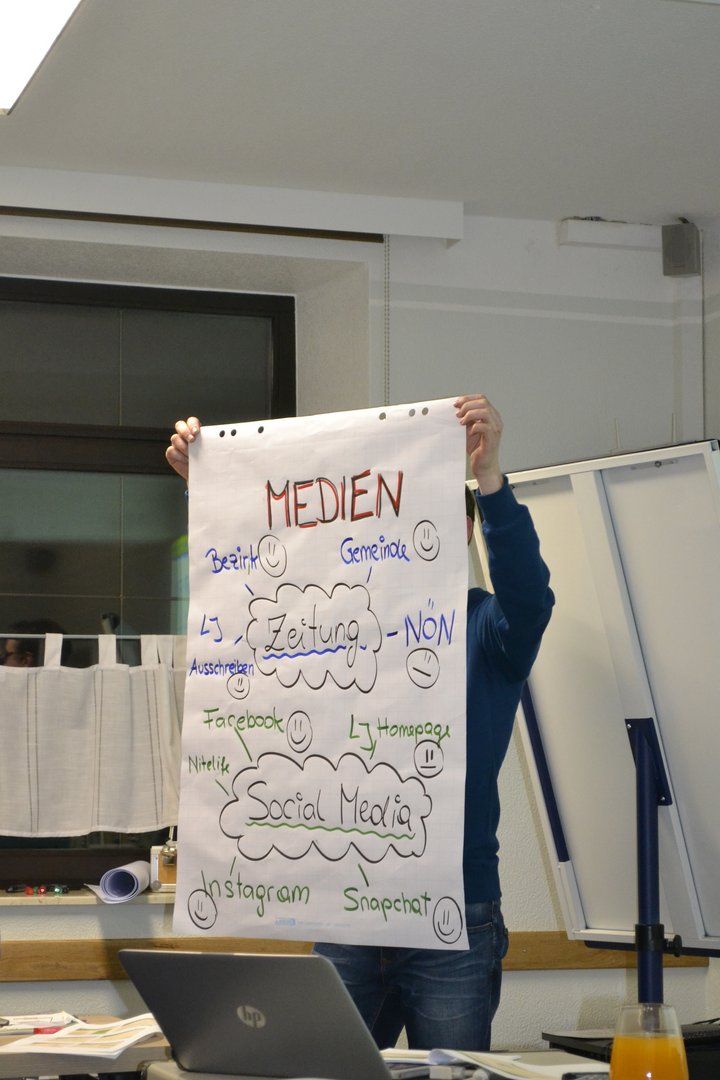 MEDIEN
Bezirk
Gemeinde
Zeitung
LJ
Ausschreiben
NÖN
Facebook
LJ Homepage
Nitelife
Social Media
Instagram
Snapchat
hp